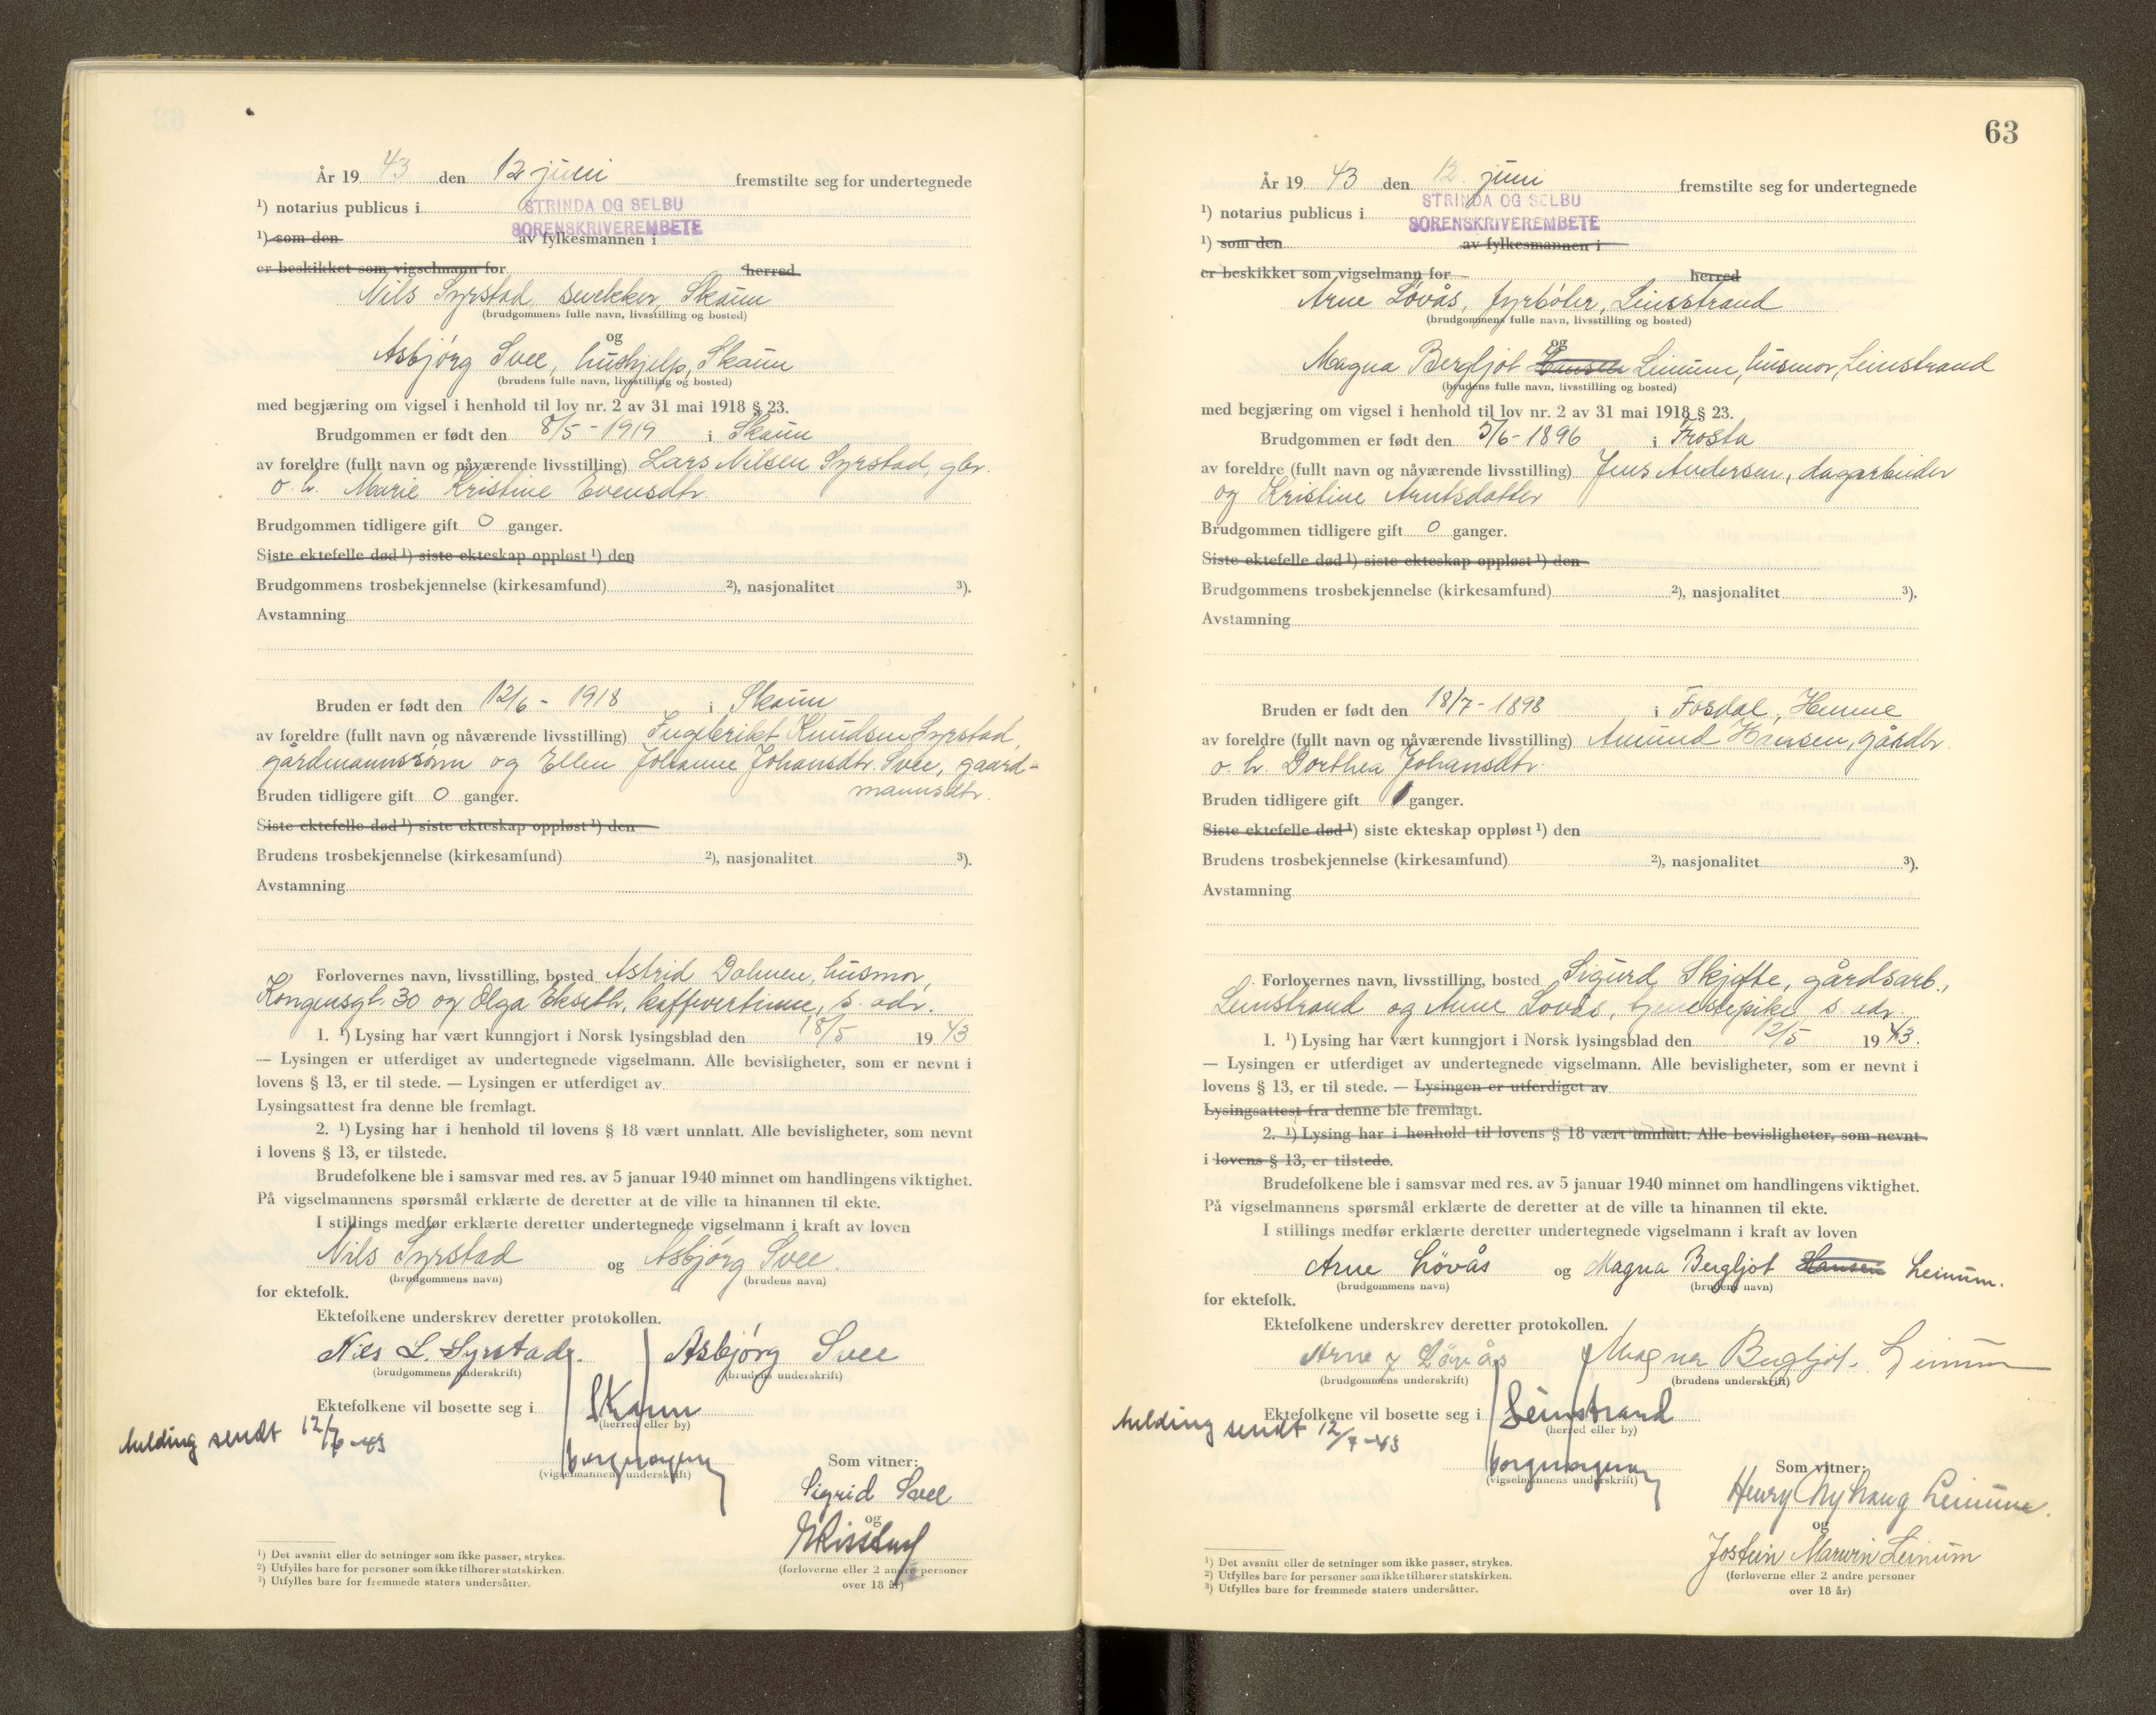 År 19 43 den 12 juni fremstilte seg for undertegnede
¹) notarius publicus i STRINDA OG SELBU
SORENSKRIVEREMBETE
¹) som den av fylkesmannen i
er beskikket som vigselmann for herred
Nils Syrstad, snekker, Skaun
(brudgommens fulle navn, livsstilling og bosted)
og
Asbjørg Svee, hushjelp, Skaun
(brudens fulle navn, livsstilling og bosted)
med begjæring om vigsel i henhold til lov nr. 2 av 31 mai 1918 § 23.
Brudgommen er født den 8/5 - 1919 i Skaun
av foreldre (fullt navn og nåværende livsstilling) Lars Nilsen Syrstad, gbr.
o. h. Marie Kristine Evensdtr.
Brudgommen tidligere gift 0 ganger.
Siste ektefelle død ¹) siste ekteskap oppløst ¹) den
Brudgommens trosbekjennelse (kirkesamfund) ²), nasjonalitet ³).
Avstamning
Bruden er født den 12/6 - 1918 i Skaun
av foreldre (fullt navn og nåværende livsstilling) Ingebrikt Knudsen Syrstad,
gårdmannssønn og Ellen Johanne Johansdtr. Svee, gaard-
mannsdtr.
Bruden tidligere gift 0 ganger.
Siste ektefelle død ¹) siste ekteskap oppløst ¹) den
Brudens trosbekjennelse (kirkesamfund) ²), nasjonalitet ³).
Avstamning
Forlovernes navn, livsstilling, bosted Astrid Dalmen, husmor,
Kongensgt. 30 og Olga Ekseth, kaffivertinne, s. adr.
1. ¹) Lysing har vært kunngjort i Norsk lysingsblad den 18/5 19 43
— Lysingen er utferdiget av undertegnede vigselmann. Alle bevisligheter, som er nevnt i
lovens § 13, er til stede. — Lysingen er utferdiget av
Lysingsattest fra denne ble fremlagt.
2. ¹) Lysing har i henhold til lovens § 18 vært unnlatt. Alle bevisligheter, som nevnt
i lovens § 13, er tilstede.
Brudefolkene ble i samsvar med res. av 5 januar 1940 minnet om handlingens viktighet.
På vigselmannens spørsmål erklærte de deretter at de ville ta hinannen til ekte.
I stillings medfør erklærte deretter undertegnede vigselmann i kraft av loven
Nils Syrstad og Asbjørg Svee.
(brudgommens navn) (brudens navn)
for ektefolk.
Ektefolkene underskrev deretter protokollen.
Nils L. Syrstad. Asbjørg Svee
(brudgommens underskrift) (brudens underskrift)
Ektefolkene vil bosette seg i Skaun
(herred eller by)
Melding sendt 12/7-43
(vigselmannens underskrift)
Som vitner:
Sigrid Svee
og
(forloverne eller 2 andre personer
over 18 år)
¹) Det avsnitt eller de setninger som ikke passer, strykes.
²) Utfylles bare for personer som ikke tilhører statskirken.
³) Utfylles bare for fremmede staters undersåtter.
63
År 19 43 den 12. juni fremstilte seg for undertegnede
¹) notarius publicus i STRINDA OG SELBU
SORENSKRIVEREMBETE
¹) som den av fylkesmannen i
er beskikket som vigselmann for herred
Arne Løvås, fyrbøter, Leinstrand
(brudgommens fulle navn, livsstilling og bosted)
og
Magna Bergljot Hansen Leinum, husmor, Leinstrand
(brudens fulle navn, livsstilling og bosted)
med begjæring om vigsel i henhold til lov nr. 2 av 31 mai 1918 § 23.
Brudgommen er født den 5/6 - 1896 i Frosta
av foreldre (fullt navn og nåværende livsstilling) Jens Andersen, dagarbeider
og Kristine Arntsdatter
Brudgommen tidligere gift 0 ganger.
Siste ektefelle død ¹) siste ekteskap oppløst ¹) den
Brudgommens trosbekjennelse (kirkesamfund) ²), nasjonalitet ³).
Avstamning
Bruden er født den 18/7 - 1898 i Fosdal, Hemne
av foreldre (fullt navn og nåværende livsstilling) Amund Hansen, gårdbr.
o. h. Dorthea Johansdtr.
Bruden tidligere gift 1 ganger.
Siste ektefelle død ¹) siste ekteskap oppløst ¹) den
Brudens trosbekjennelse (kirkesamfund) ²), nasjonalitet ³).
Avstamning
Forlovernes navn, livsstilling, bosted Sigurd Skjefte, gårdsarb.,
Leinstrand og Anne Lovås, tjenestepike s. adr.
1. ¹) Lysing har vært kunngjort i Norsk lysingsblad den 12/5 19 43.
— Lysingen er utferdiget av undertegnede vigselmann. Alle bevisligheter, som er nevnt i
lovens § 13, er til stede. — Lysingen er utferdiget av
Lysingsattest fra denne ble fremlagt.
2. ¹) Lysing har i henhold til lovens § 18 vært unnlatt. Alle bevisligheter, som nevnt
i lovens § 13, er tilstede.
Brudefolkene ble i samsvar med res. av 5 januar 1940 minnet om handlingens viktighet.
På vigselmannens spørsmål erklærte de deretter at de ville ta hinannen til ekte.
I stillings medfør erklærte deretter undertegnede vigselmann i kraft av loven
Arne Løvås og Magna Bergljot Hansen Leinum.
(brudgommens navn) (brudens navn)
for ektefolk.
Ektefolkene underskrev deretter protokollen.
Arne J Løvås Magna Bergljot Leinum
(brudgommens underskrift) (brudens underskrift)
Ektefolkene vil bosette seg i Leinstrand
(herred eller by)
Melding sendt 12/7-43
(vigselmannens underskrift)
Som vitner:
Henry Nyhaug Leinum.
og
Jostein Marvin Leinum
(forloverne eller 2 andre personer
over 18 år)
¹) Det avsnitt eller de setninger som ikke passer, strykes.
²) Utfylles bare for personer som ikke tilhører statskirken.
³) Utfylles bare for fremmede staters undersåtter.